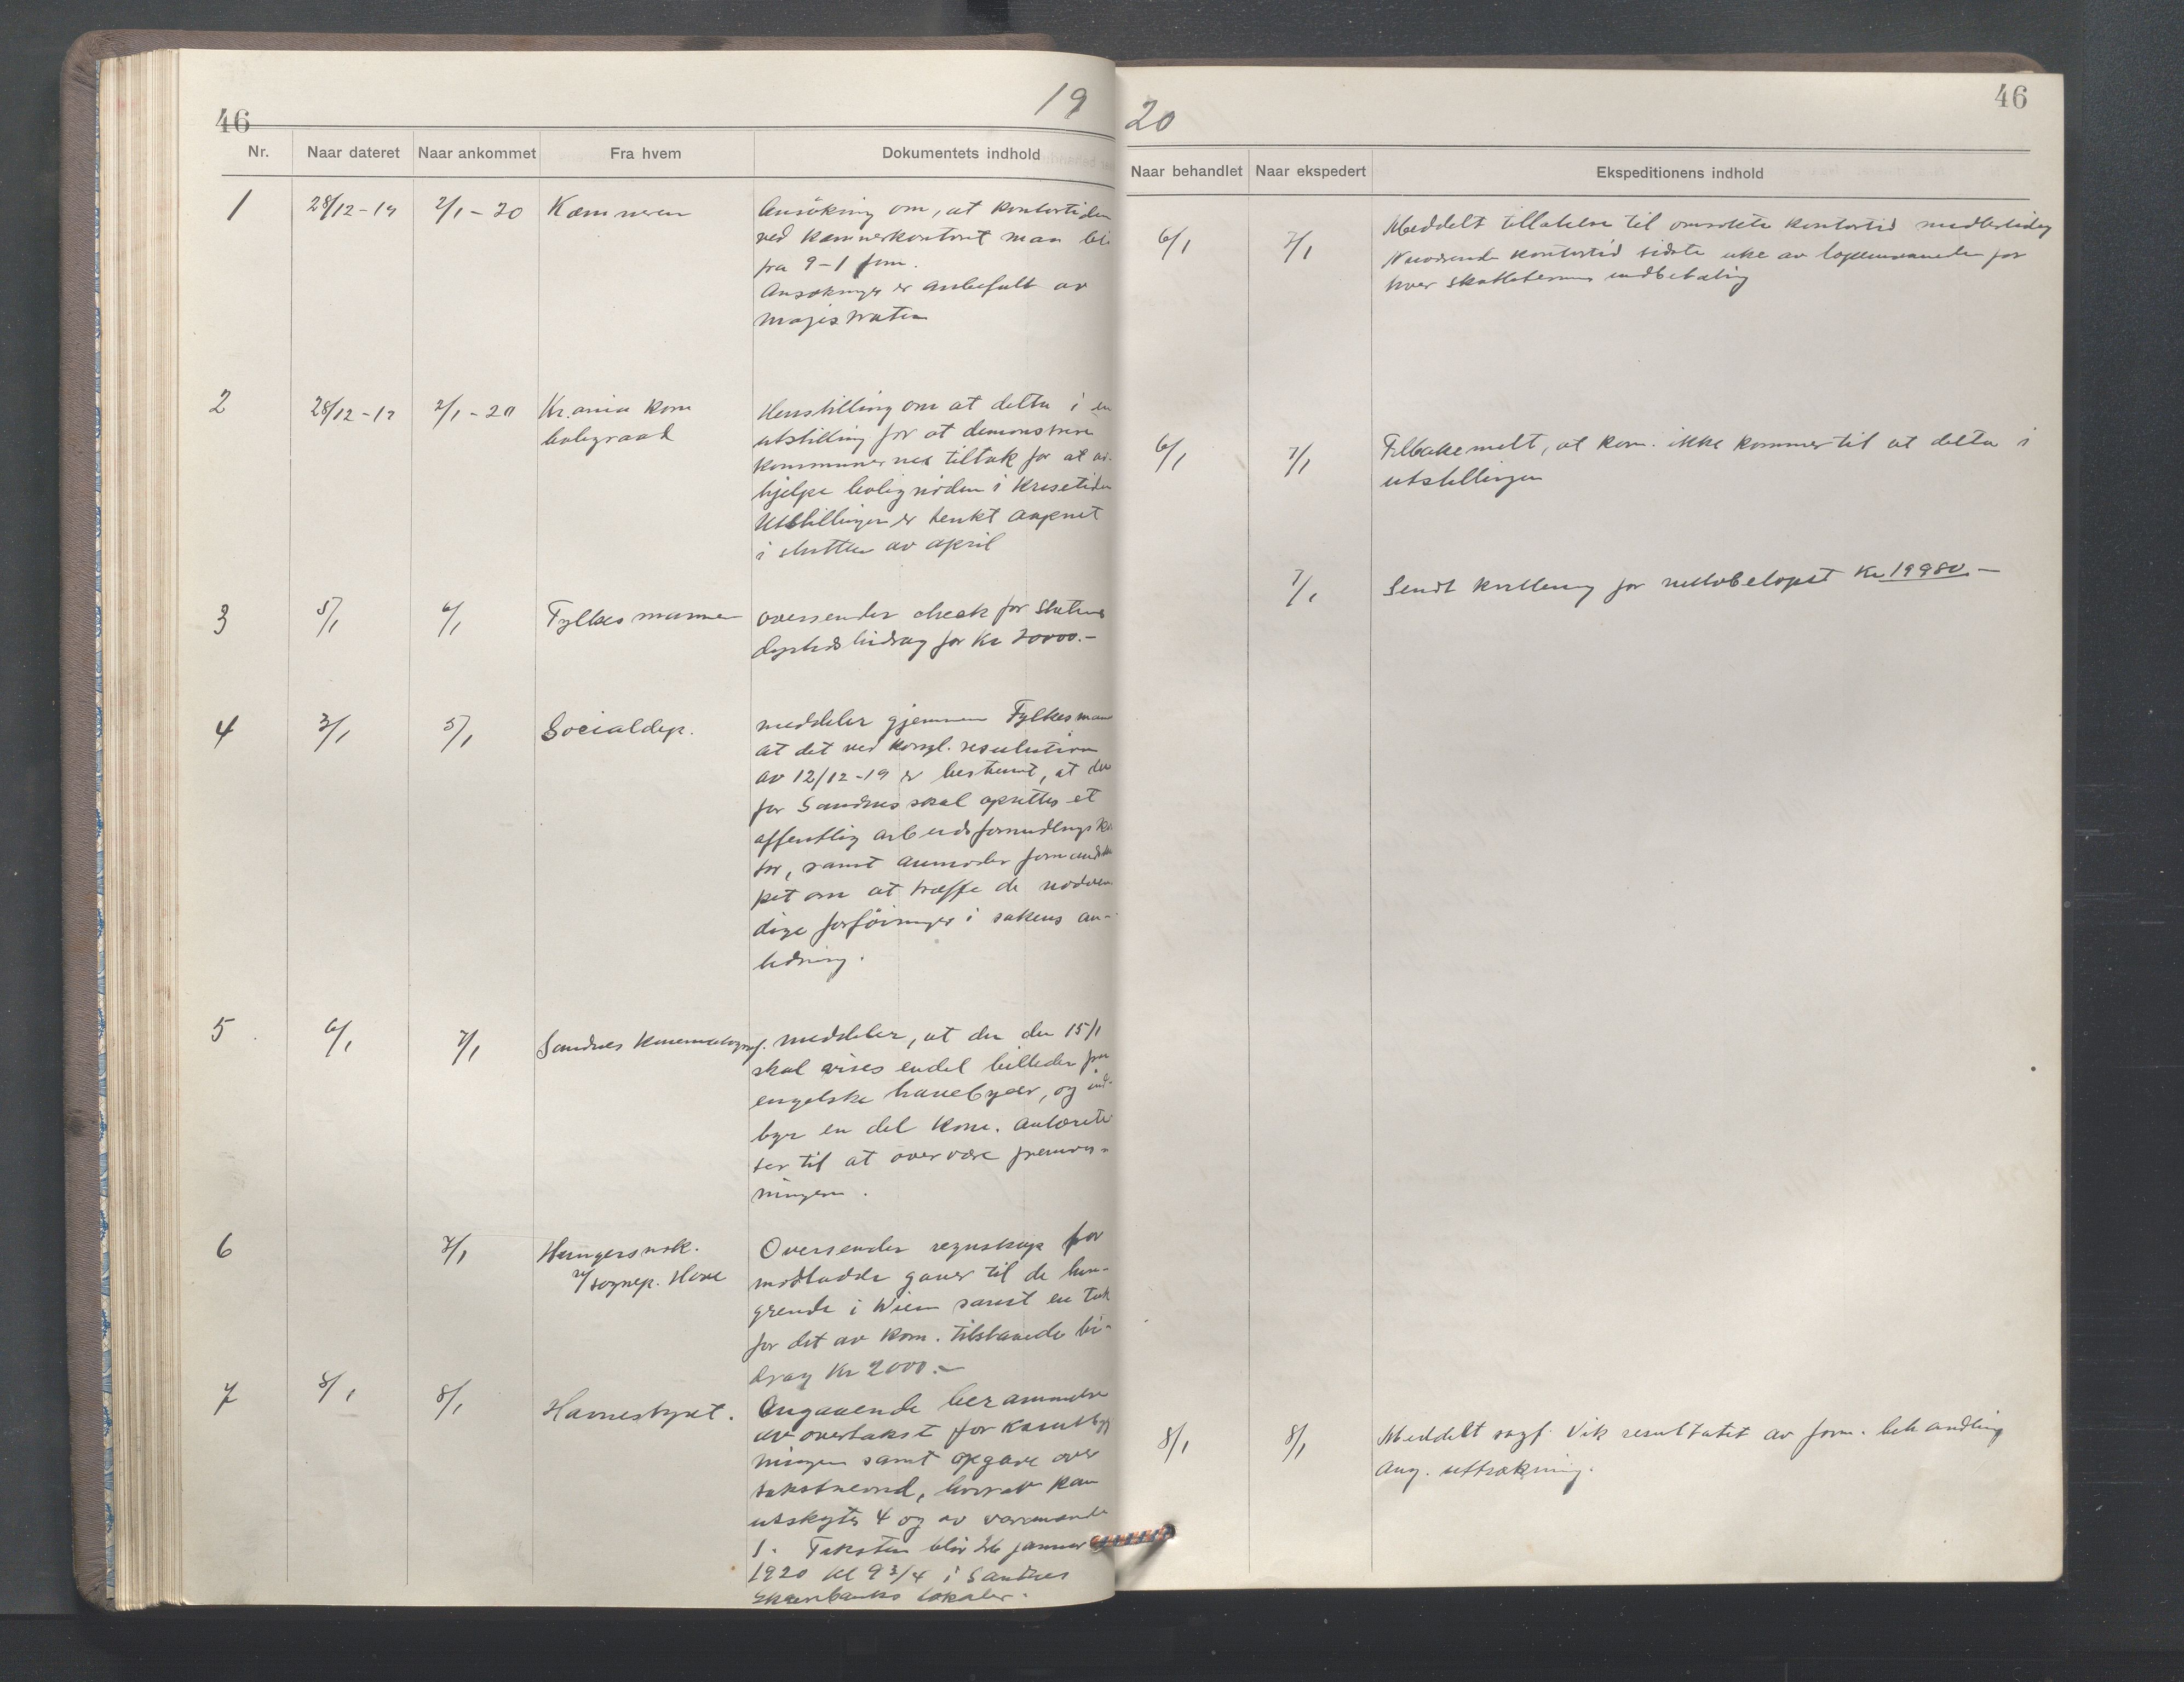 46
19
20
46
Nr. Naar dateret Naar ankommet Fra hvem Dokumentets indhold
Naar behandlet Naar ekspedert Ekspeditionens indhold
1 28/12-19 2/1-20 Kæmneren Ansökning om, at kontortiden
ved kæmnerkontoret maa bli
fra 9-1 fom.
Ansøkningen er anbefalt av
magistraten
6/1 7/1 Meddelt tillatelse til omsøkte kontortid midlertidig
Nuværende kontortid sidste uke av for
hver skattetermins indbetaling
2 28/12-19 2/1-20 Kr.ania kom
boligraad
Henstilling om at delta i en
utstilling for at demonstrere
kommunernes tiltak for at av-
hjelpe bolignöden i krisetiden
Utstillingen er tenkt aapnet
i slutten av april
6/1 7/1 Tilbakemelt, at kom. ikke kommer til at delta i
utstillingen
3 5/1 6/1 Fylkesmannen oversender check for Statens
dyrtidsbidrag for Kr 20000.-
7/1 Sendt kvittering for nettobeløpet Kr 19980.-
4 3/1 5/1 Socialdep. meddeler gjennem Fylkesman
at det ved kongl. resolution
av 12/12-19 er bestemt, at der
for Sandnes skal oprettes et
offentlig arbeidsformidlingskon
tor, samt anmoder formandska
pet om at træffe de nødven
dige forföininger i sakens an-
ledning.
5 6/1 7/1 Sandnes Kinematograf. meddeler, at der den 15/1
skal vises endel billeder fra
engelske havebyer, og ind-
byr en del kom. autorite
ter til at overvære fremvis-
ningen.
6 7/1 Hungersnøk.
v/sognep. Hove
Oversender regnskap for
mottadde gaver til de hun-
grende i Wien samt en tak
for det av kom. tilstaaede bi-
drag Kr 2000.-
7 8/1 8/1 Havnestyret. Angaaende berammelse
av overtakst for
ningen samt opgave over
takstmænd, hvorav kan
utskytes 4 og av varamænd
1. Taksten blir 26 januar
1920 kl 9 3/4 i Sandnes
Sparebanks lokaler.
8/1 8/1 Meddelt sagf. Vik resultatet av form. behandling
ang. utskytning.